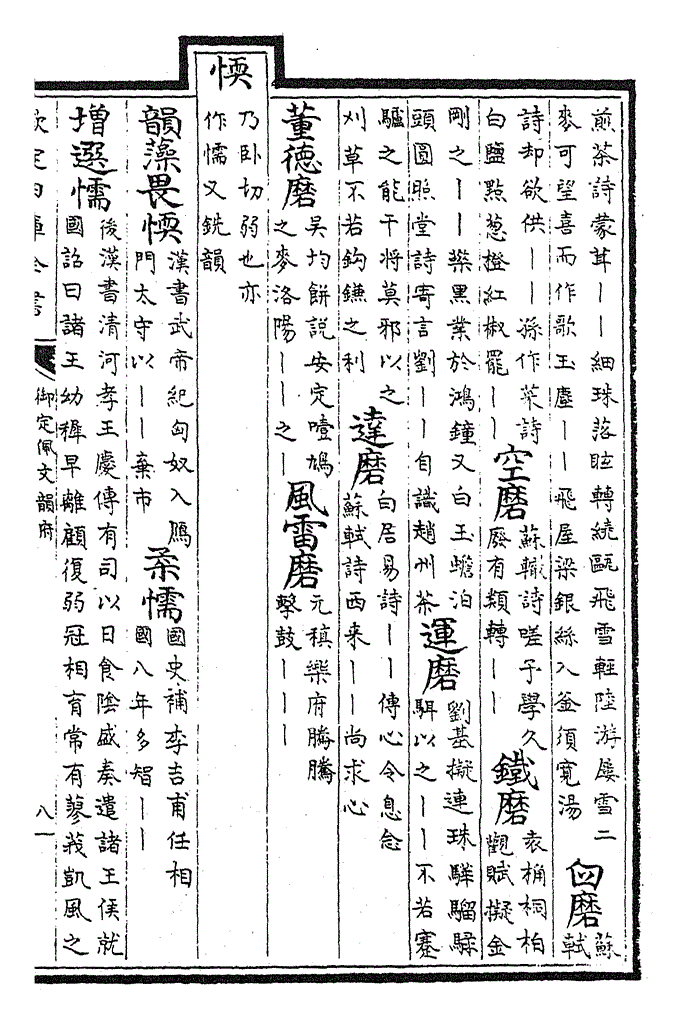 煎茶詩蒙茸丨丨細珠落眩轉繞甌飛雪輕陸游屢雪二
麥可望喜而作歌玉塵丨丨飛屋梁銀絲入釜須寛湯
四磨
蘇軾
詩却欲供丨丨孫作菜詩
白鹽㸃葱橙紅椒罷丨丨
空磨
蘇轍詩嗟予學久
廢有類轉丨丨
鐵磨
袁桷桐柏
觀賦擬金
剛之丨丨蘗黑業於鴻鐘又白玉蟾泊
頭圓照堂詩寄言劉丨丨自識趙州茶
運磨
劉基擬連珠驊騮騄
駬以之丨丨不若蹇
驢之能干将莫邪以之
刈草不若鈎鐮之利
達磨
白居易詩丨丨傳心令息念
蘇軾詩西来丨丨尚求心
董德磨
吴均餅説安定噎鳩
之麥洛陽丨丨之丨
風雷磨
元稹樂府騰騰
擊鼓丨丨丨
愞
乃卧切弱也亦
作懦又銑韻
韻藻畏愞
漢書武帝紀匈奴入鴈
門太守以丨丨棄市
柔懦
國史補李吉甫任相
國八年多智丨丨
增選懦
後漢書清河孝王慶傳有司以日食隂盛奏遣諸王侯就
國詔曰諸王幼穉早離顧復弱冠相育常有蓼莪凱風之
欽定四庫全書
御定佩文韻府
八